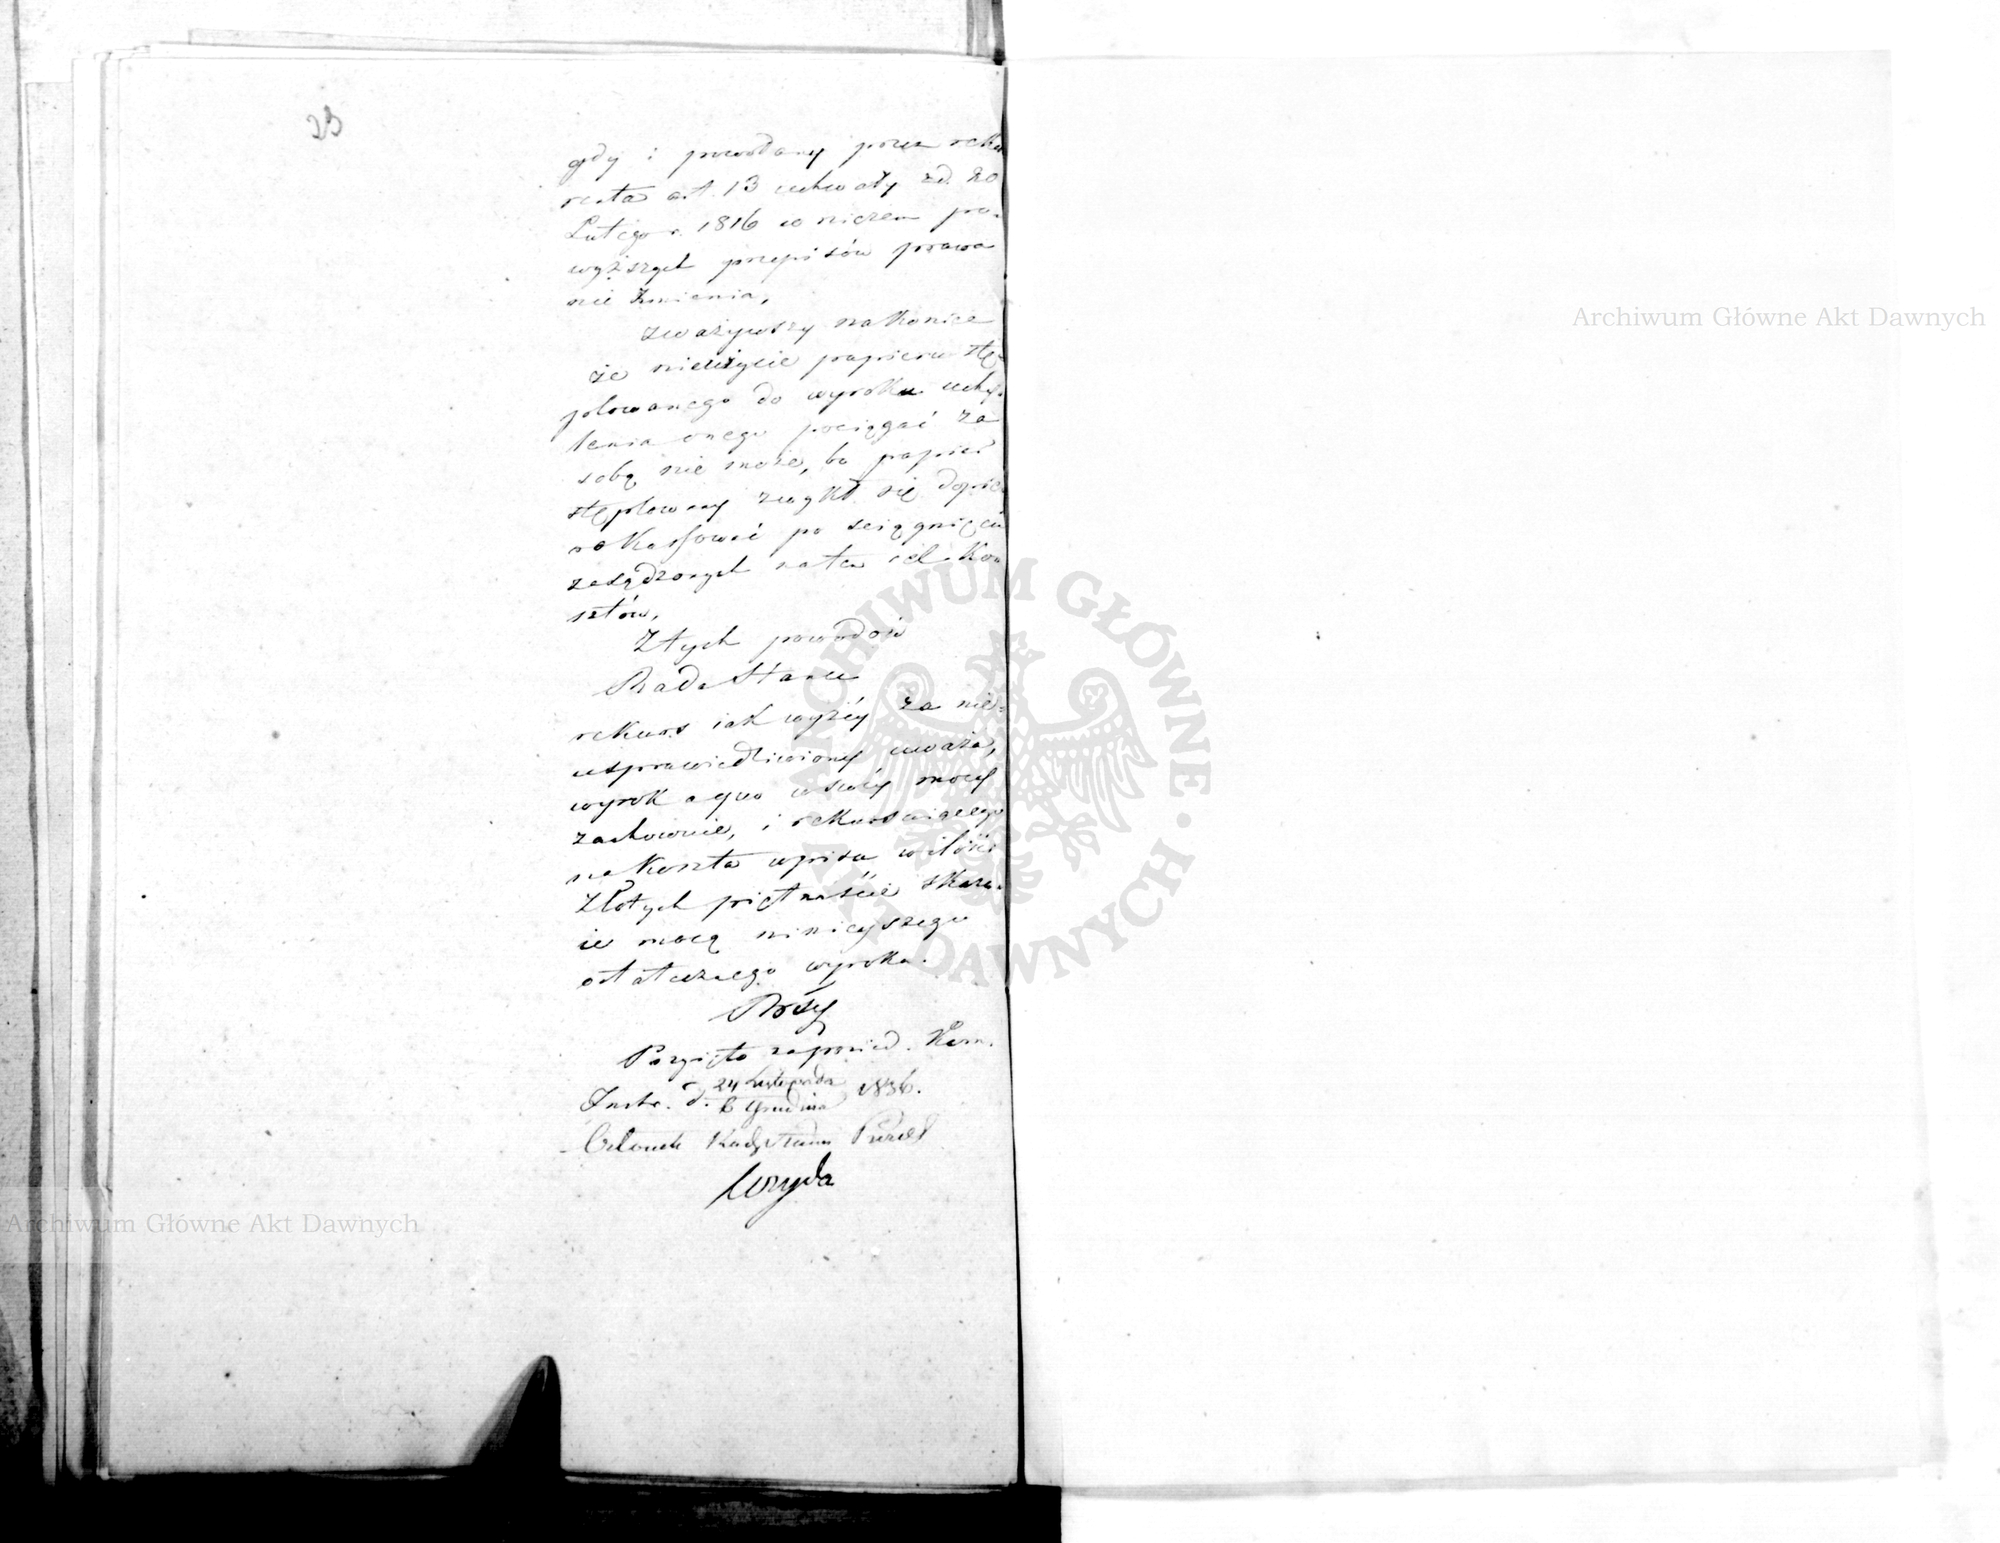 23
gdy i powołany przez reku
renta art. 13 uchwały z d. 20
Lutego r. 1816 w niczem po-
wyższych przepisów prawa
nie zmienia,
zważywszy nakoniec
że nieużycie papieru stę-
plowanego do wyroku uchy-
lenia onego pociągać za
sobą nie może, bo papier
stęplowany zwykł się dopie-
ro kassować po ściągnięciu
zasądzonych na ten cel ko-
sztów,
Z tych powodów
Rada Stanu
rekurs iak wyżéy za nie-
usprawiedliwiony uważa,
wyrok a quo w swéy mocy
zachowuie, i rekurruiącego
na koszta wpisu w ilości
Złotych piętnaście skazu-
ie mocą ninieyszego
ostatecznego wyroku.
Przyięto na posied. Kom.
Instr. d. 24 Listopada 1836.
6 Grudnia
Członek Rady Stanu
Wozyda
Archiwum Główne Akt Dawnych
Archiwum Główne Akt Dawnych
ARCHIWUM GŁÓWNE · AKT DAWNYCH ·